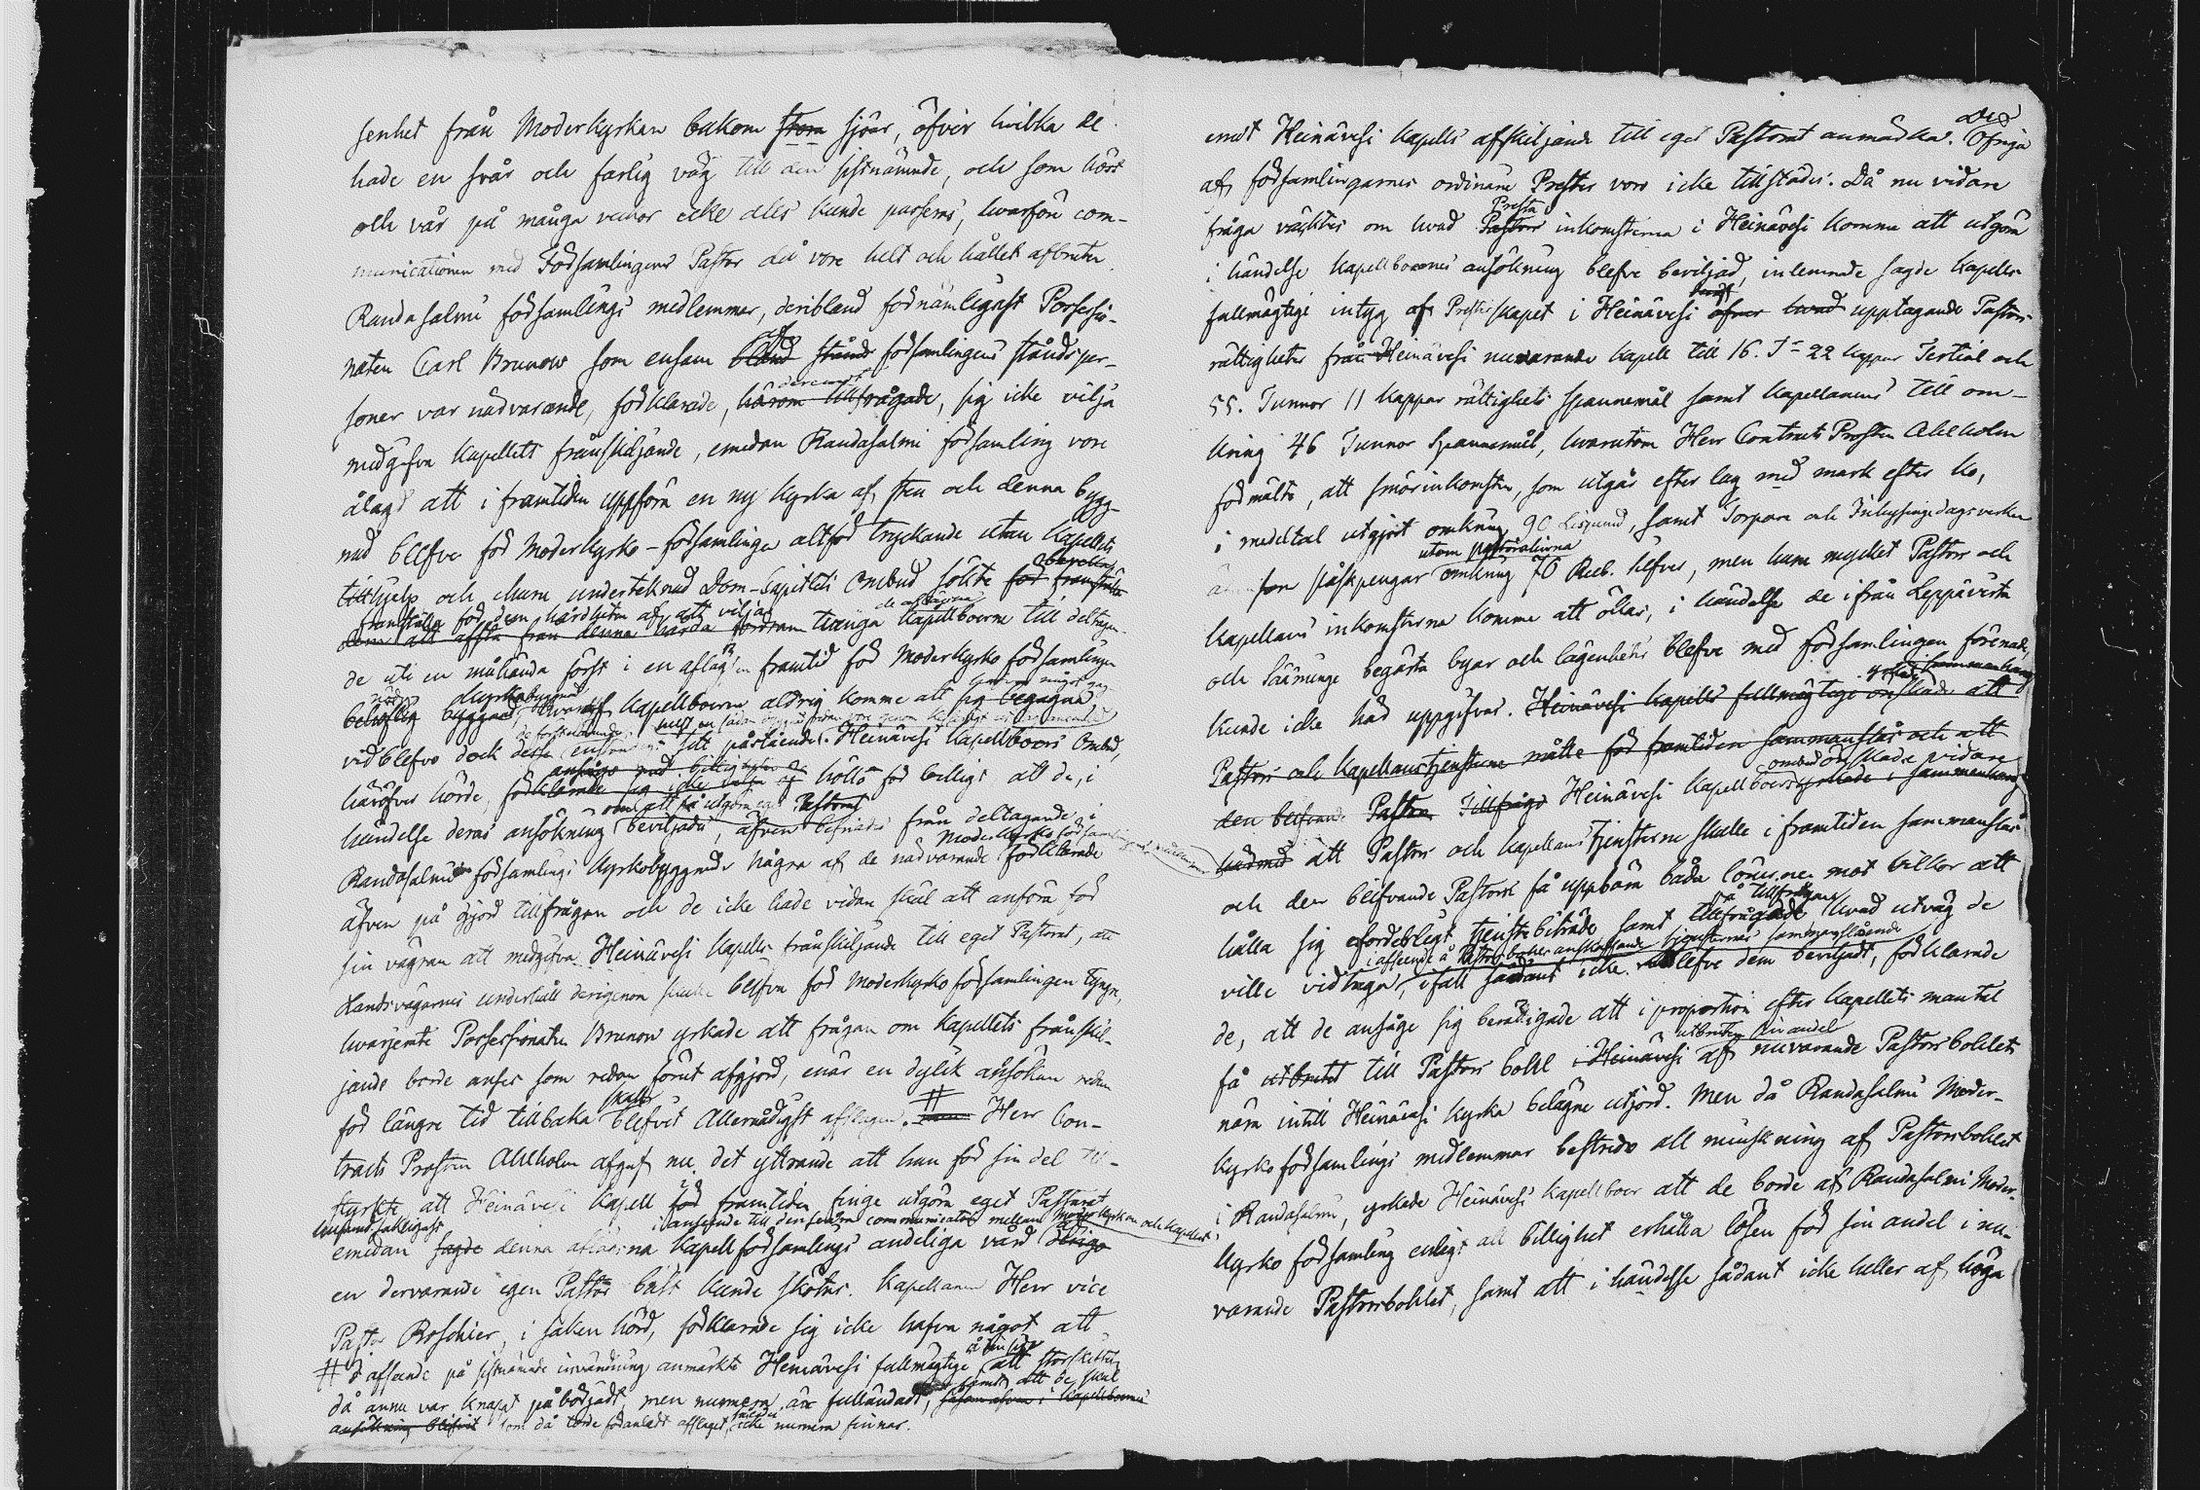 senhet från Moderkyrkan bakom stora sjöar, öfver hvilka de
hade en svår och farlig väg till den sistnämnde, och som höst
och vår på många veckor icke alls kunde passeras, hvarföre com-
municationen med Församlingens Pastor då vore helt och hållet afbruten.
Randasalmi församlings medlemmar, deribland förnämligast Possessio-
naten Carl Brunow som ensam bland stånds församlingens ståndsper-
soner var närvarande, förklarade, härom tillfrågade, sig icke vilja
deremot
medgifva Kapellets frånskiljande, emedan Randasalmi församling vore
ålagd att i framtiden uppföra en ny kyrka af sten och denna bygg-
nad blefve för Moderkyrko-församlingen altför tryckande utan Kapellets
tillhjelp och ehuru undertecknad Dom-Capitlets Ombud sökte för
framställa för dem hårdheten af att vilja
dem att afstå från denna hårda fordran tvinga Kapellboerne till deltagan-
de uti en måhända först i en aflägsen framtid för Moderkyrko församlingen
behöflig byggnad, hvaraf Kapellboerne aldrig komme att sig begagna
vidblefvo dock desse sitt påstående. Heinävesi Kapellboers Ombud,
häröfver hörde, förklarade sig icke höllo för billigt att de, i
om att få utgöra eget Pastorat
händelse deras ansökning beviljades, äfven befriades från deltagande i
Randasalmi församlings Kyrkobyggnad. Några af de närvarande förklarade
Moderkyrko församlingens medlemmar
äfven på gjord tillfrågan och de icke hade vidare skäl att anföra för
sin vägran att medgifva Heinävesi Kapells frånskiljande till eget Pastorat, att
Landsvägarnes underhåll derigenom skulle blifva för Moderkyrko församlingen tyngre,
hvarjemte Possessionaten Brunow yrkade att frågan om Kapellets frånskil-
jande borde anses som redan förut afgjord, enär en dylik ansökan redan
för längre tid tillbaka skall blifvit Allernådigst afslagen. # Herr Con-
tracts Prosten Ahlholm afgaf nu det yttrande att han för sin del till-
styrkte, att Heinävesi Kapell för framtiden finge utgöra eget Pastorat
i anseende till den svåra communication mellan Moderkyrkan och Kapellet
emedan sagde denna aflägsna Kapellförsamlings andeliga vård
en dervarande egen Pastor bäst kunde skötas. Kapellanen Herr vice
Pastor Roschier, i saken hörd, förklarade sig icke hafva något att
# I afseende på sistnämnde invändning anmärkte Heinävesi fullmägtige att storskiftet
då ännu var knapt påbörjadt, men numera är fulländadt, samt att de skäl
ansökning blifvit som då torde föranledt afslaget icke numera finnas.
emot Heinävesi Kapells afskiljande till eget Pastorat anmärka. De Öfriga
af församlingarnes ordinarie Prester voro icke tillstädes. Då nu vidare
fråga väcktes om hvad Pastors Presta inkomsterna i Heinävesi komme att utgöra
i händelse Kapellboernes ansökning blefve beviljad, inlemnade sagde Kapells
fullmägtige intyg af Presterskapet i Heinävesi öfver hvad upptagande Pastors
rättigheter från Heinävesi nuvarande Kapell till 16. T:r 22 kappar Tertial och
55. Tunnor 11 kappar rättighets spannemål samt Kapellanens till om-
kring 46 Tunnor Spannemål, hvarutom Herr Contracts Prosten Ahlholm
förmälte, att smörinkomsten, som utgår efter lag med mark efter ko,
i medeltal utgjort omkring 90 Lispund, samt Torpare och Inhysingedagsverken
utom påskpengar omkring 70 Rub. silfver, men huru mycket Pastors och
Kapellans inkomsterna komme att ökas, i händelse de ifrån Leppävirta
och Sääminge begärta byar och lägenheter blefve med församlingen förenade,
kunde icke här uppgifvas. Heinävesi Kapells fullmägtige önskade att
Pastors och Kapellanstjensterne måtte för framtiden sammanslås och att
den blifvande Pastorn Tillfrågo Heinävesi Kapellboers ombud önskade vidare
härmed att Pastors och Kapellans Tjensterne skulle i framtiden sammanslås
och den blifvande Pastorn få uppbära båda lönerne mot vilkor att
hålla sig erforderligt tjenstebiträde samt på tillfrågan hvad utväg de
i afseende å Pastorsbohls anskaffande tjensternes sammanslående
ville vidtaga, ifall sådant icke blefve dem beviljadt, förklarade
de, att de ansåge sig berättigade att i proportion efter Kapellets mantal
få utbruten sin andel till Pastors bohl i Heinävesi af nuvarande Pastorsbohlet
nära intill Heinävesi kyrka belägne utjord. Men då Randasalmi Moder-
kyrko församlings medlemmar bestredo all minskning af Pastorsbohlet
i Randasalmi, yrkade Heinävesi Kapellboer att de borde af Randasalmi Moder-
kyrko församling enligt all billighet erhålla lösen för sin andel i nu-
varande Pastorsbohlet, samt att i händelse sådant icke heller af höga